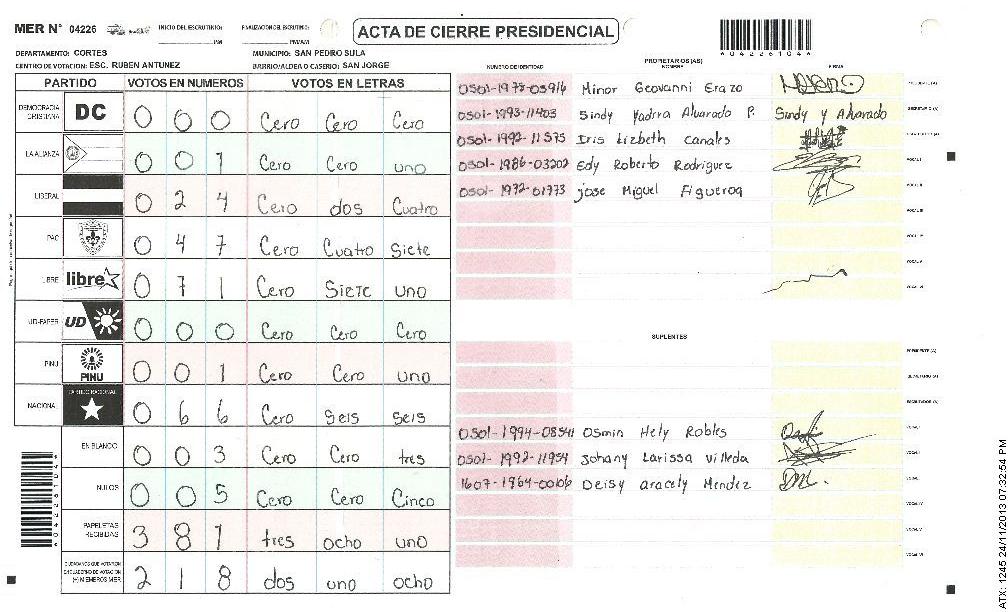 MER N° 04226 INICIO DEL ESCRUTINIO: PM FINALIZACION DEL ESCRUTINIO: PM/AM
ACTA DE CIERRE PRESIDENCIAL
04226104
DEPARTAMENTO: CORTES MUNICIPIO: SAN PEDRO SULA
CENTRO DE VOTACION: ESC. RUBEN ANTUNEZ BARRIO/ALDEA O CASERIO: SAN JORGE
PARTIDO VOTOS EN NUMEROS VOTOS EN LETRAS
DEMOCRACIA CRISTIANA DC 0 0 0 Cero Cero Cero
LA ALIANZA 0 0 1 Cero Cero uno
LIBERAL 0 2 4 Cero dos Cuatro
PAC 0 4 7 Cero Cuatro Siete
LIBRE libre 0 7 1 Cero Siete uno
UD-FAPER UD 0 0 0 Cero Cero Cero
PINU PINU 0 0 1 Cero Cero uno
NACIONAL PARTIDO NACIONAL 0 6 6 Cero Seis Seis
EN BLANCO 0 0 3 Cero Cero tres
NULOS 0 0 5 Cero Cero Cinco
PAPELETAS RECIBIDAS 3 8 1 tres ocho uno
CIUDADANOS QUE VOTARON EN CUADERNO DE VOTACION (+) MIEMBROS MER 2 1 8 dos uno ocho
PROPIETARIOS (AS)
NUMERO DE IDENTIDAD NOMBRE FIRMA
0501-1973-03914 Minor Geovanni Erazo PRESIDENTE (A)
0501-1993-11403 Sindy Yadira Alvarado P. Sindy Y Alvarado SECRETARIO (A)
0501-1992-11575 Iris Lizbeth Canales ESCRUTADOR (A)
0501-1986-03202 Edy Roberto Rodriguez VOCAL I
0501-1972-01773 jose Miguel Figueroa VOCAL II
VOCAL III
VOCAL IV
VOCAL V
VOCAL VI
SUPLENTES
PRESIDENTE (A)
SECRETARIO (A)
ESCRUTADOR (A)
0501-1994-08541 Osmin Hely Robles VOCAL I
0501-1992-11954 Johany Larissa Villeda VOCAL II
1607-1964-00106 Deisy aracely Mendez VOCAL III
VOCAL IV
VOCAL V
VOCAL VI
ATX: 1245 24/11/2013 07:32:54 PM